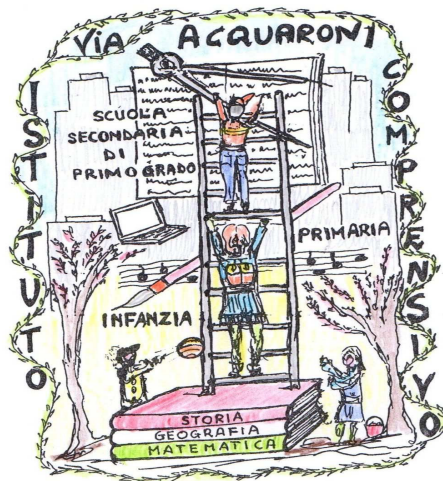 VIA ACQUARONI
ISTITUTO
COMPRENSIVO
SCUOLA
SECONDARIA
DI
PRIMO GRADO
PRIMARIA
INFANZIA
STORIA
GEOGRAFIA
MATEMATICA